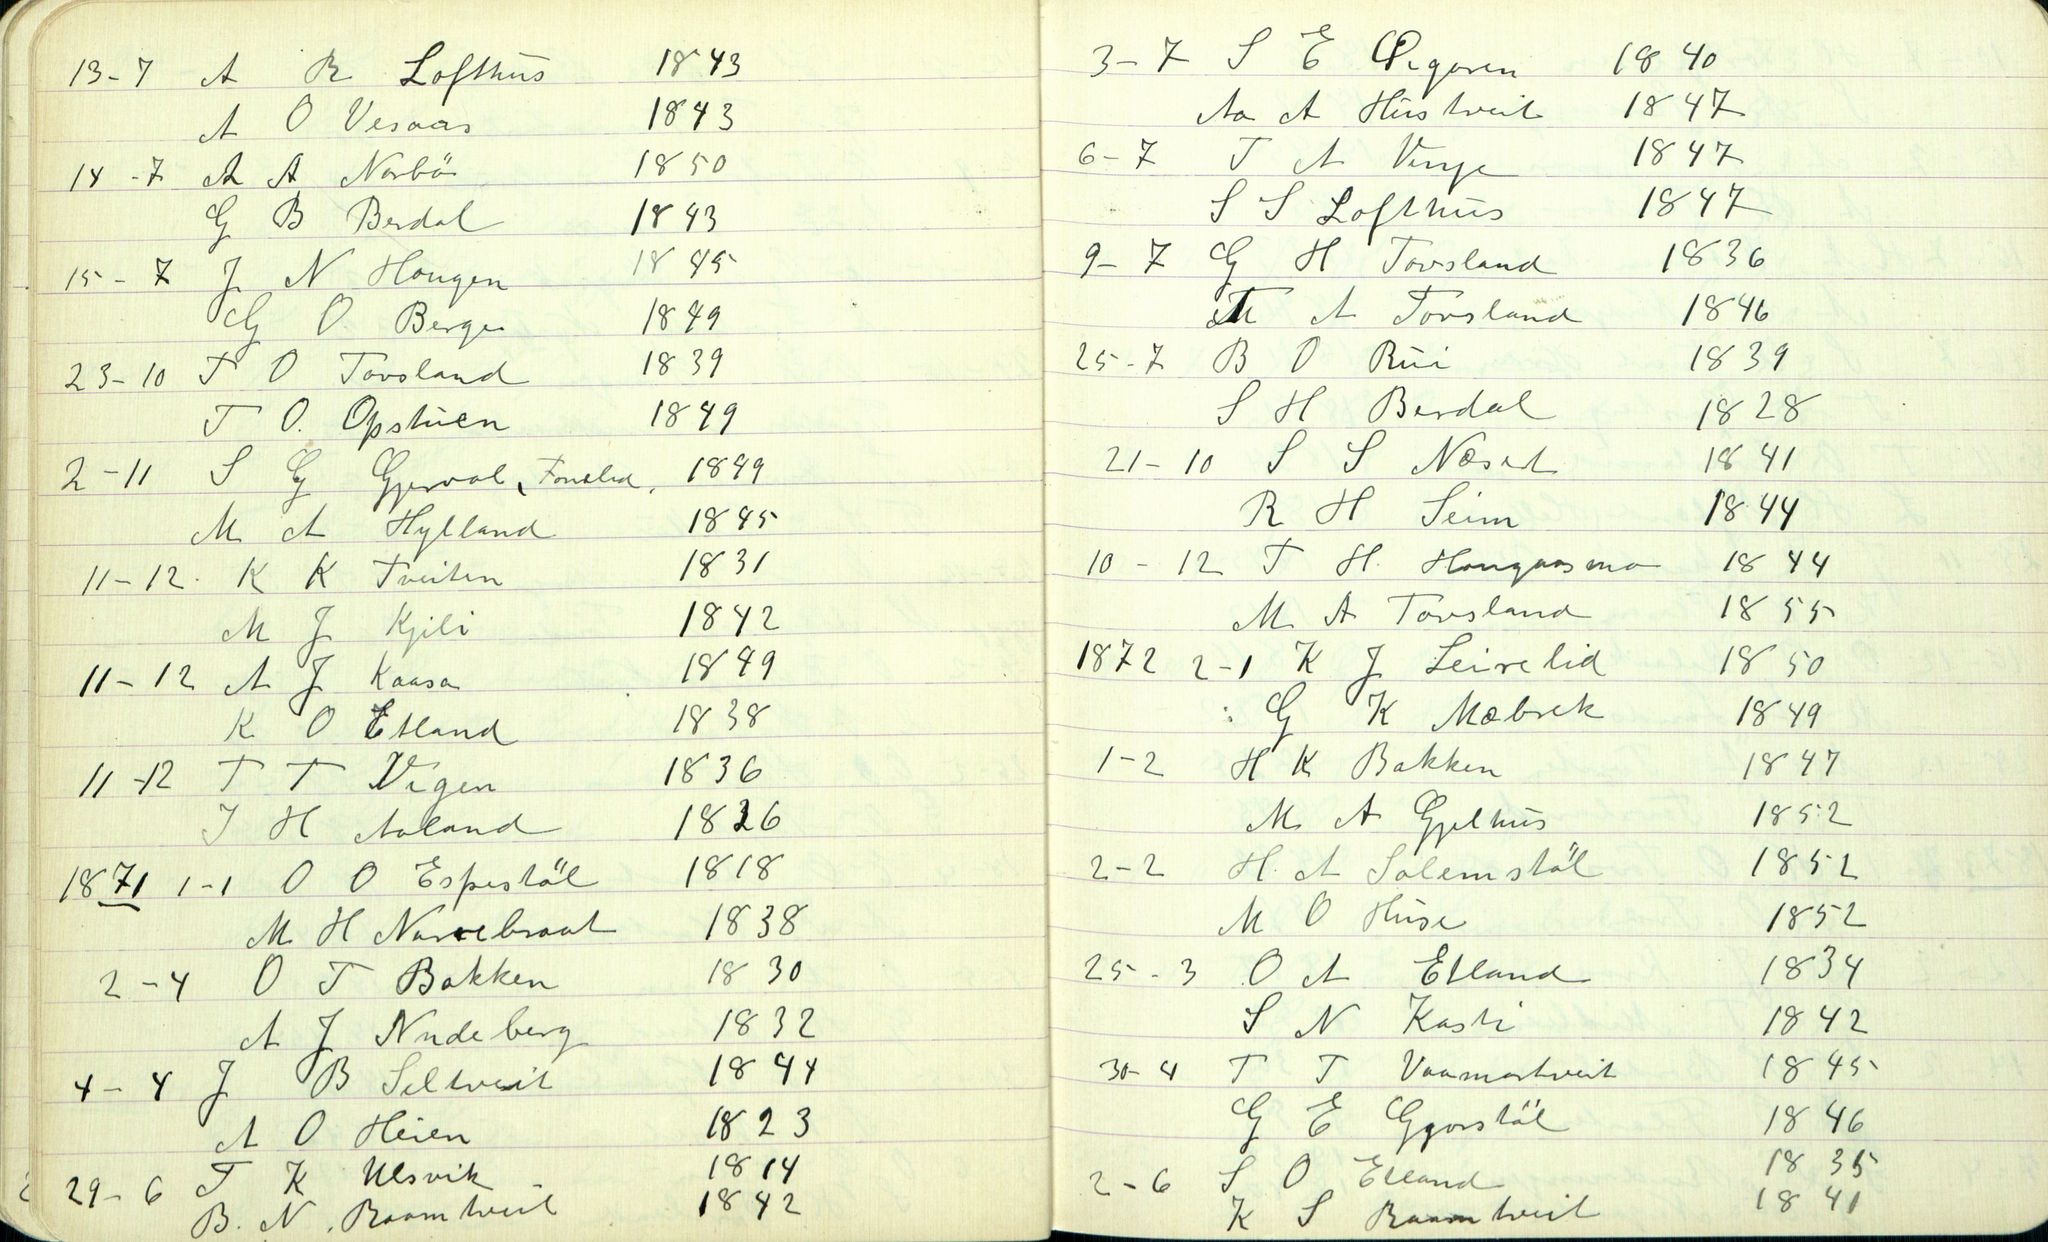 13-7 A R Lofthus 1843
A O Vesaas 1843
14-7 A A Norbö 1850
G B Berdal 1843
15-7 J N Hougen 1845
G O Berge 1849
23-10 T O Tovsland 1839
T O. Opstuen 1849
2-11 S G Gjervol, 1849
M A Hylland 1845
11-12. K K Tveiten 1831
M J Kjili 1842
11-12 A J Kaasa 1849
K O Etland 1838
11-12 T T Vigen 1836
J H Aaland 1826
1871 1-1 O O Espestöl 1818
M H Narvebraat 1838
2-4 O T Bakken 1830
A J Nudeberg 1832
4-4 J B Seltveit 1844
A O Heien 1823
29-6 T K Ulsvik 1814
B. N. Raamtveit 1842
3-7 S E Øigaren 1840
Aa A Hustveit 1847
6-7 T A Vinje 1847
S S Lofthus 1847
9-7 G H Tovsland 1836
M A Tovsland 1846
25-7 B O Rui 1839
S H Berdal 1828
21-10 S S Næset 1841
R H Seim 1844
10-12 T H. Hougaasmo 1844
M A Tovsland 1855
1872 2-1 K J Leirelid 1850
G K Mæbrek 1849
1-2 H K Bakken 1847
M A Gjelhus 1852
2-2 H. A Solemstöl 1852
M O Huse 1852
25-3 O A Etland 1834
S N Kasti 1842
30-4 T T Vaamartveit 1845
G E Gjorstöl 1846
2-6 S O Etland 1835
K S Raamtveit 1841